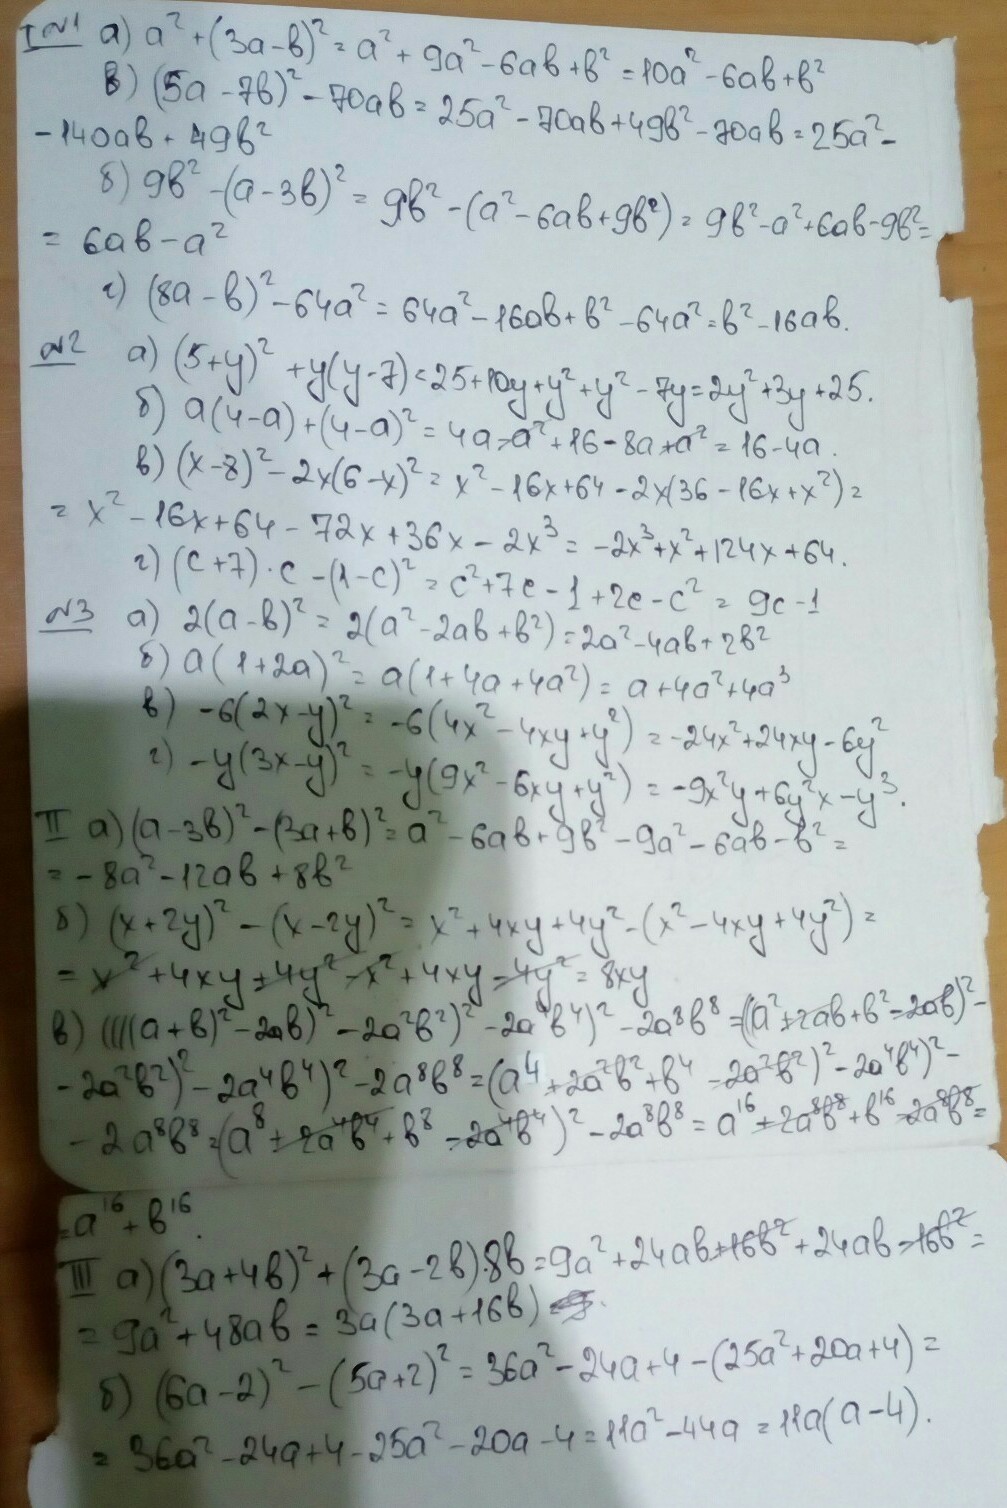 I №1 а) a² + (3a - b)² = a² + 9a² - 6ab + b² = 10a² - 6ab + b²
в) (5a - 7b)² - 70ab = 25a² - 70ab + 49b² - 70ab = 25a² -
- 140ab + 49b²
б) 9b² - (a - 3b)² = 9b² - (a² - 6ab + 9b²) = 9b² - a² + 6ab - 9b² =
= 6ab - a²
г) (8a - b)² - 64a² = 64a² - 16ab + b² - 64a² = b² - 16ab.
№2 а) (5 + y)² + y(y - 7) = 25 + 10y + y² + y² - 7y = 2y² + 3y + 25.
б) a(4 - a) + (4 - a)² = 4a - a² + 16 - 8a + a² = 16 - 4a.
в) (x - 8)² - 2x(6 - x)² = x² - 16x + 64 - 2x(36 - 16x + x²) =
= x² - 16x + 64 - 72x + 36x - 2x³ = -2x³ + x² + 124x + 64.
г) (c + 7) · c - (1 - c)² = c² + 7c - 1 + 2c - c² = 9c - 1
№3 а) 2(a - b)² = 2(a² - 2ab + b²) = 2a² - 4ab + 2b²
б) a(1 + 2a)² = a(1 + 4a + 4a²) = a + 4a² + 4a³
в) -6(2x - y)² = -6(4x² - 4xy + y²) = -24x² + 24xy - 6y²
г) -y(3x - y)² = -y(9x² - 6xy + y²) = -9x²y + 6y²x - y³.
II а) (a - 3b)² - (3a + b)² = a² - 6ab + 9b² - 9a² - 6ab - b² =
= -8a² - 12ab + 8b²
б) (x + 2y)² - (x - 2y)² = x² + 4xy + 4y² - (x² - 4xy + 4y²) =
= x² + 4xy + 4y² - x² + 4xy - 4y² = 8xy
в) ((((a + b)² - 2ab)² - 2a²b²)² - 2a⁴b⁴)² - 2a⁸b⁸ = ((a² + 2ab + b² - 2ab)² -
- 2a²b²)² - 2a⁴b⁴)² - 2a⁸b⁸ = (a⁴ + 2a²b² + b⁴ - 2a²b²)² - 2a⁴b⁴)² -
- 2a⁸b⁸ = (a⁸ + 2a⁴b⁴ + b⁸ - 2a⁴b⁴)² - 2a⁸b⁸ = a¹⁶ + 2a⁸b⁸ + b¹⁶ - 2a⁸b⁸ =
= a¹⁶ + b¹⁶.
III а) (3a + 4b)² + (3a - 2b) · 8b = 9a² + 24ab + 16b² + 24ab - 16b² =
= 9a² + 48ab = 3a(3a + 16b)
б) (6a - 2)² - (5a + 2)² = 36a² - 24a + 4 - (25a² + 20a + 4) =
= 36a² - 24a + 4 - 25a² - 20a - 4 = 11a² - 44a = 11a(a - 4).